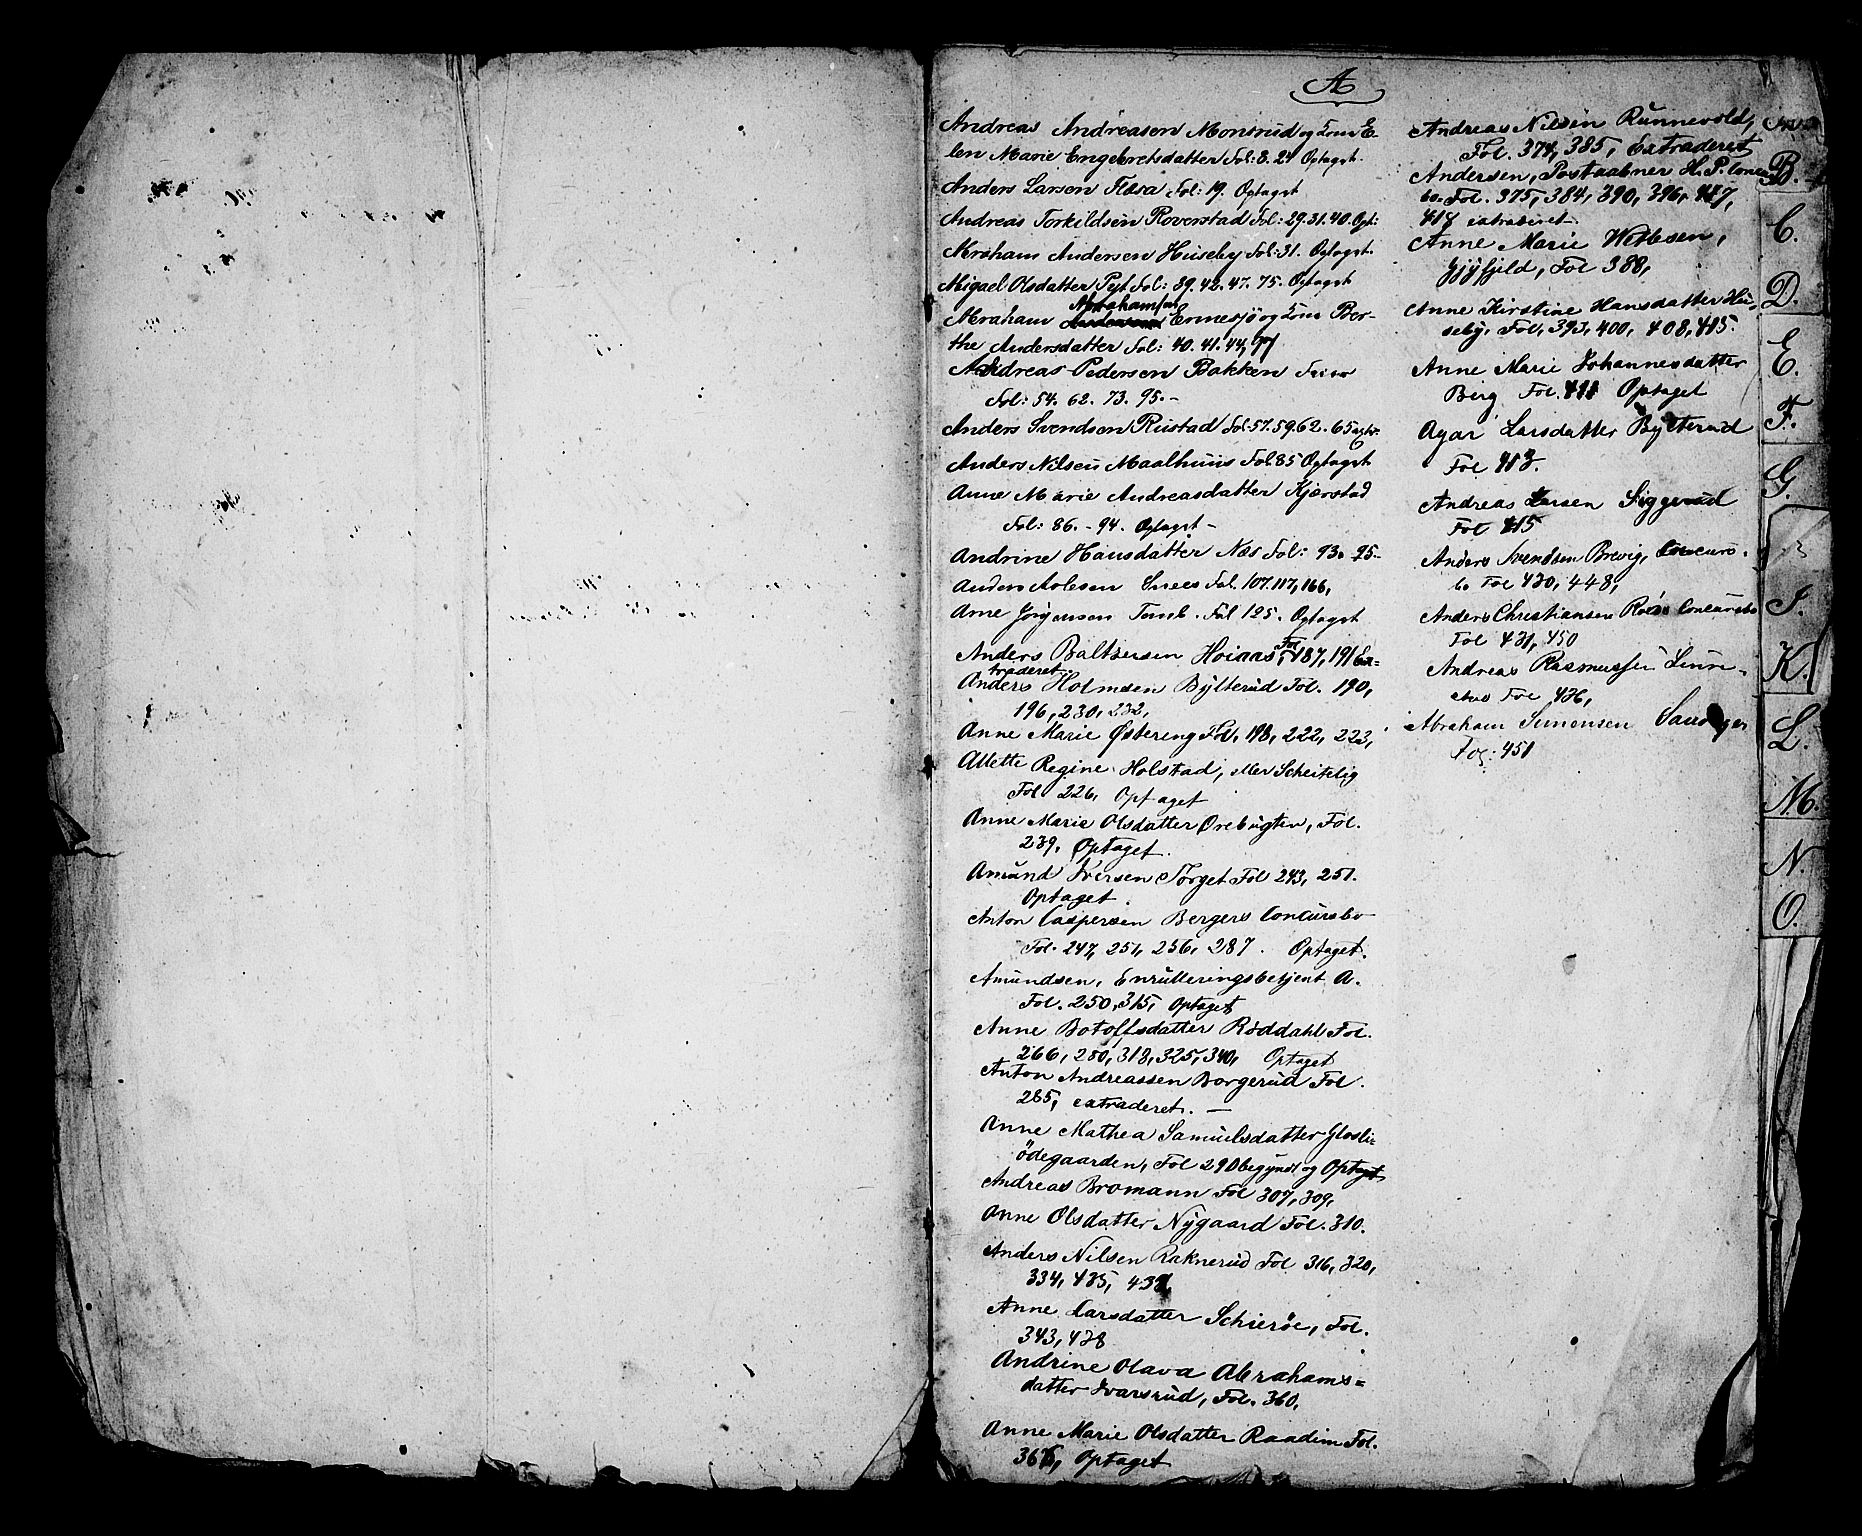 A
Andreas Andreasen Monsrud og Kone E-
len Marie Engebretsdatter Fol: 8. 24 Optaget.
Anders Larsen Flesa Fol: 19. Optaget
Andreas Torkildsen Roverstad Fol: 29. 31. 40. Opt:
Abraham Andersen Huseby Fol: 31. Optaget.
Abigael Olsdatter Fol: 39. 42. 47. 75. Optaget
Abrahamsen
Abraham Ermesjø og Kone Ber-
the Andersdatter Fol: 40. 41. 44, 77
Andreas Pedersen Bakken
Fol: 54. 62. 73. 95. -
Anders Svendsen Rustad Fol: 57. 59. 62. 65
Anders Nilsen Maalhuus Fol. 85 Optaget
Anne Marie Andreasdatter Kjørstad
Fol: 86. - 94. Optaget -
Andrine Hansdatter Næs Fol: 93. 95.-
Anders Fol. 107. 117, 166,
Arne Jörgensen Tomb. Fol 125. Optaget
Anders Baltsersen Hoiaas Fol 187, 191 Ex=
traderet
Anders Holmsen Bylterud Fol. 190,
196, 230, 232,
Anne Marie Østereng Fol. 198, 222, 223,
Allette Regine Holstad, eller Scheitelig
Fol 226, Optaget
Anne Marie Olsdatter Ørebugten, Fol.
239, Optaget.
Amund Iversen Torget Fol 243, 251.
Optaget.
Anton Caspersen Bergers Concursbo
Fol. 247, 251, 256, 287. Optaget.
Amundsen, Enrulleringsbetjent A.
Fol. 250, 315, Optaget
Anne Botolfsdatter Røddahl Fol.
266, 280, 318, 325, 340, Optaget
Anton Andreassen Borgerud Fol.
285, extraderet. —
Anne Mathea Samuelsdatter Glosli=
ödegaarden, Fol 290 begyndt og Optaget
Andreas Bromann Fol 307, 309,
Anne Olsdatter Nygaard Fol. 310.
Anders Nilsen Raknerud Fol 316, 320,
334, 435, 437,
Anne Larsdatter Schieröe, Fol.
343, 428
Andrine Olava Abrahams=
datter Ivarsrud, Fol. 360,
Anne Marie Olsdatter Raadim Fol.
367, Optaget
Andreas Nilsen Runnevold,
Fol. 374, 385, Extraderet
Andersen, Postaabner H. P. Concurs
bo. Fol. 375, 384, 390, 396, 417,
418 extraderet.
Anne Marie Willesen,
Gjyfjeld, Fol 388,
Anne Kirstine Hansdatter Hu-
seby, Fol, 393, 400, 408, 415.
Anne Marie Johannesdatter
Berg Fol. 411 Optaget
Agar Larsdatter Bylterud
Fol 413.
Andreas Larsen Siggerud
Fol 415
Anders Svendsen Brevig, Concurs-
bo Fol 420, 448,
Anders Christiansen Concursbo
Fol 431, 450
Andreas Rasmussen
Fol 436,
Abraham Simensen
Fol: 451
B.
C.
D.
E.
F.
G.
I.
K.
L.
M.
N.
O.